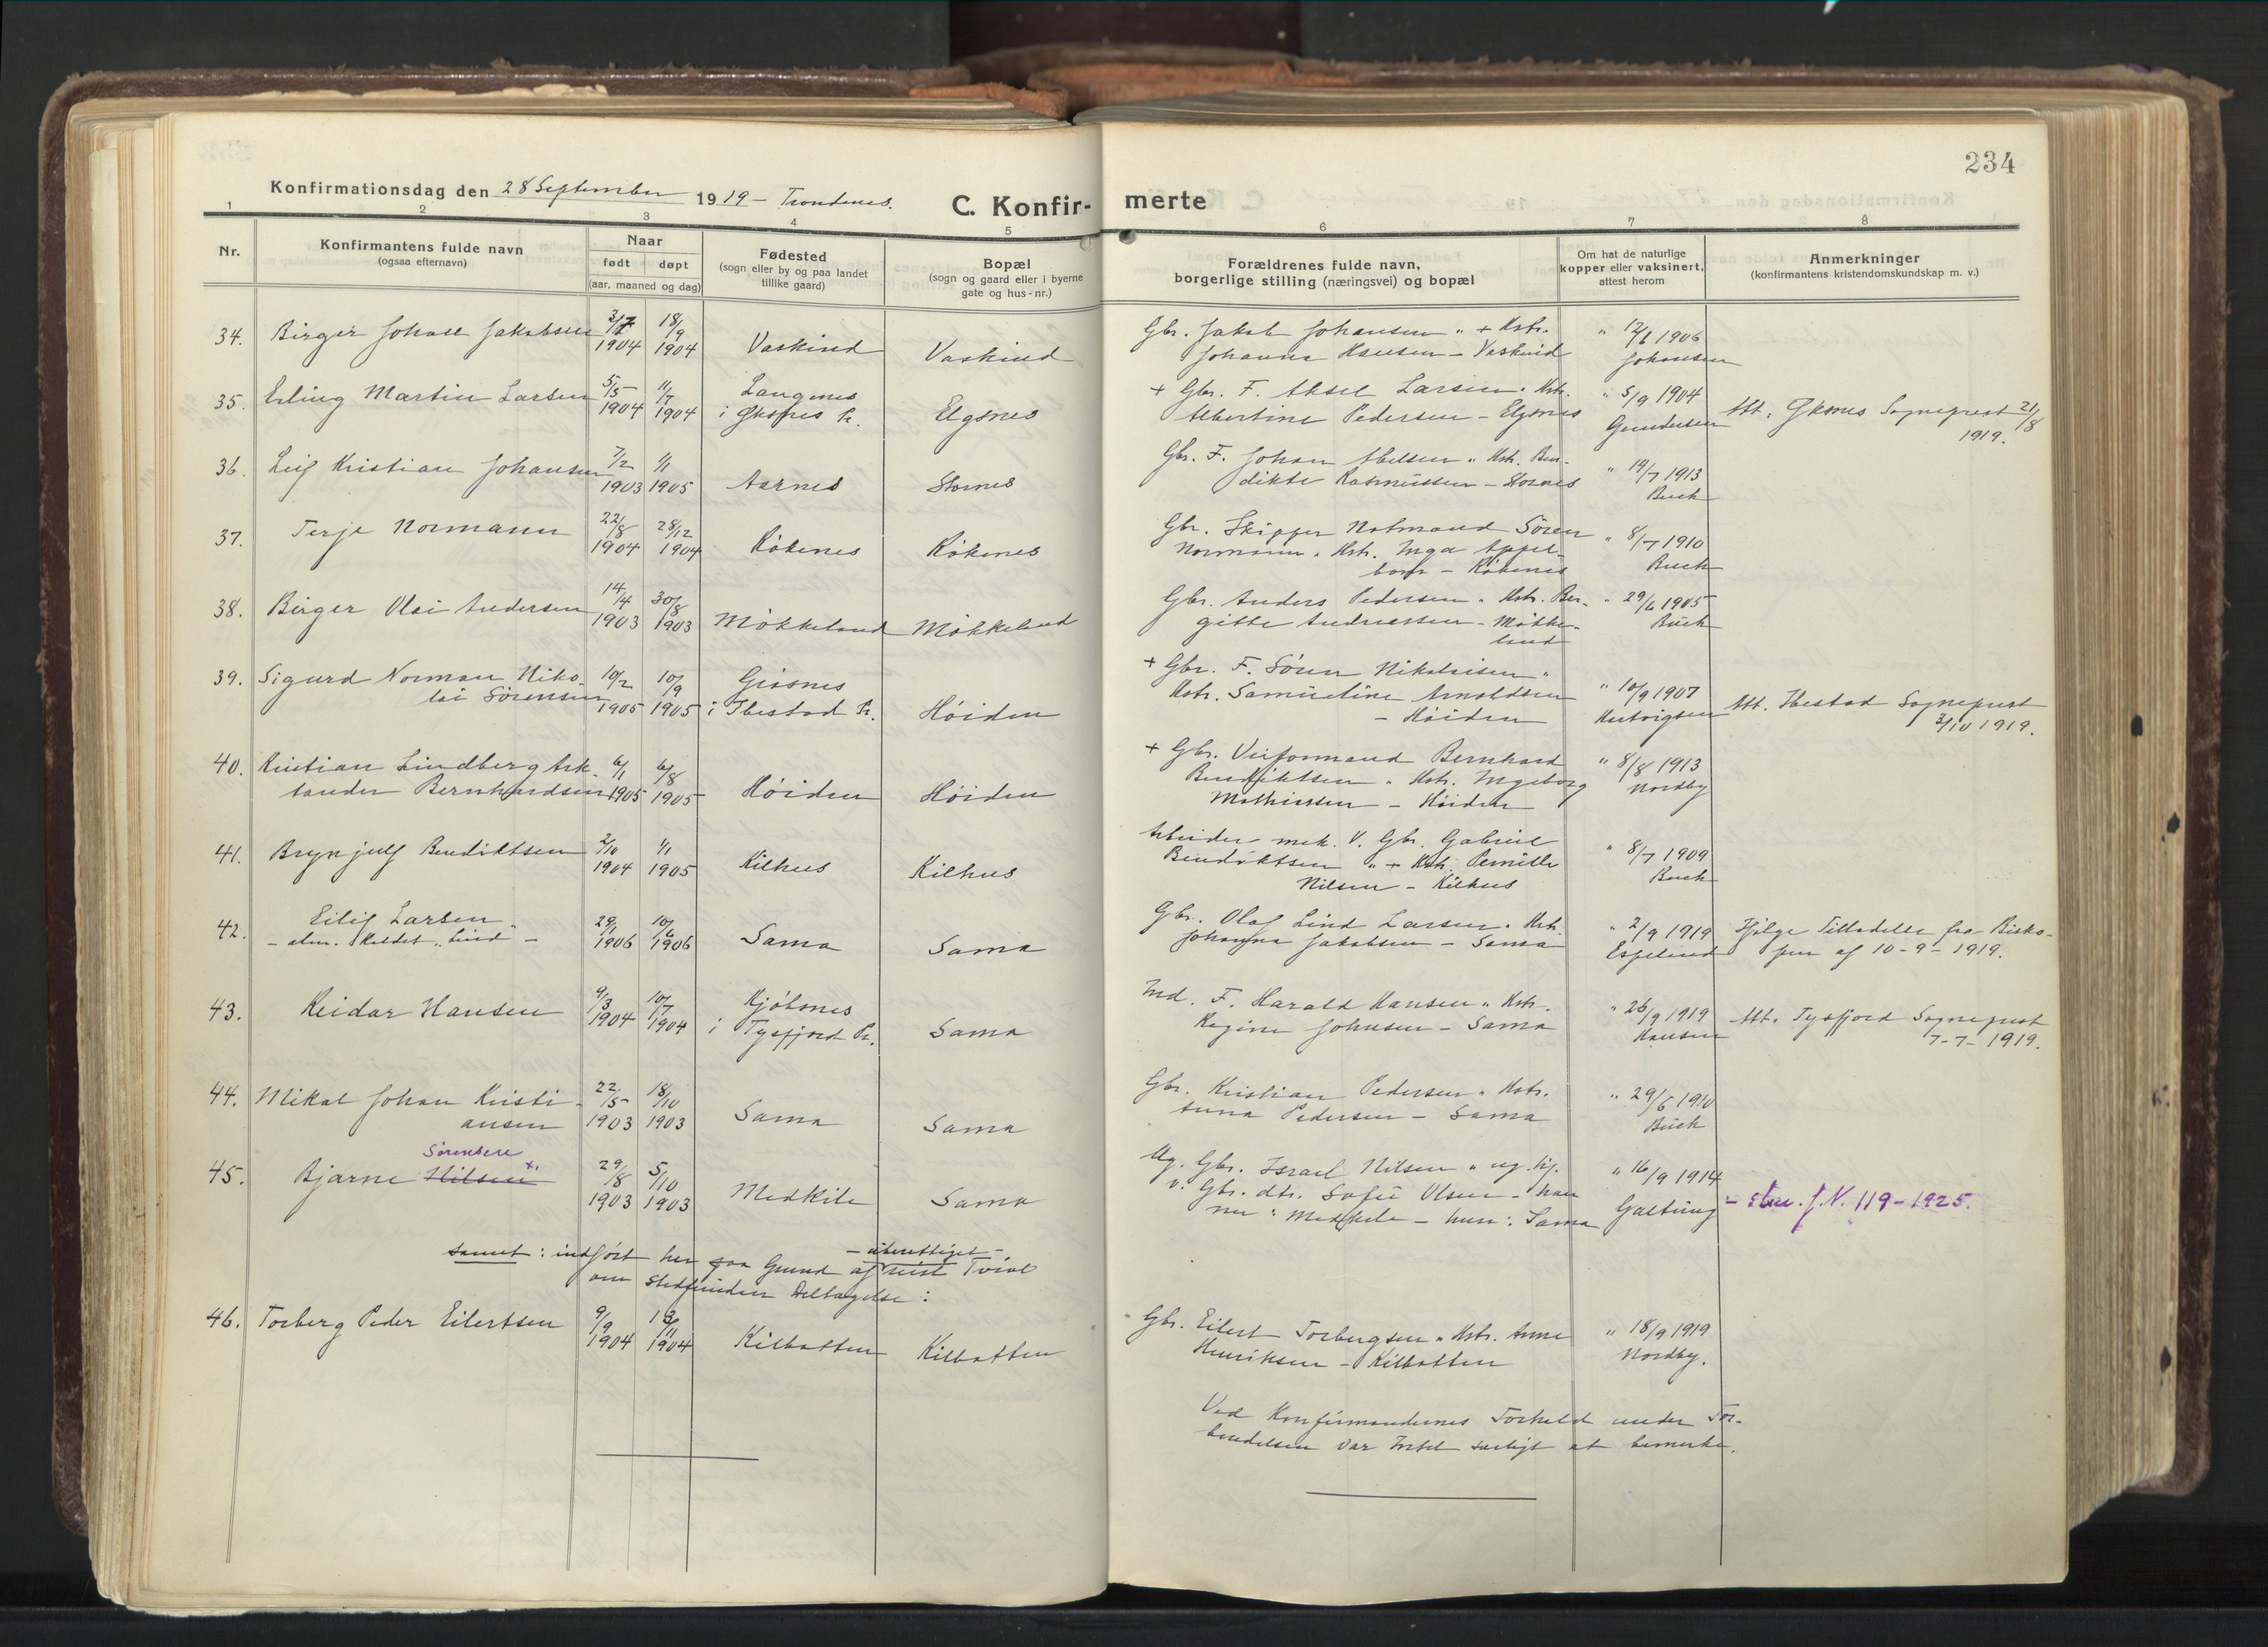 234
Konfirmationsdag den 28 September 1919 - Trondenes.
C. Konfir-merte
1 2 3 4 5 6 7 8
Nr.
Konfirmantens fulde navn
(ogsaa efternavn)
Naar
født døpt
(aar, maaned og dag)
Fødested
(sogn eller by og paa landet
tillike gaard)
Bopæl
(sogn og gaard eller i byerne
gate og hus-nr.)
Forældrenes fulde navn,
borgerlige stilling (næringsvei) og bopæl
Om hat de naturlige
kopper eller vaksinert,
attest herom
Anmerkninger
(konfirmantens kristendomskundskap m. v.)
34. Birger Johan Jakobsen 3/7 1904 18/9 1904 Vaskind Vaskind
Gbr. Jakob Johansen " + Hstr.
Johanna Hansen - Vaskind
" 12/6 1906
Johansen
35. Erling Martin Larsen 5/5 1904 11/7 1904 Langenes
i Øksnes Pr. Elgsnes
+ Gbr. F. Aksel Larsen " Hstr.
Albertine Pedersen - Elgsnes
" 5/9 1904
Gundersen
Att. Øksnes Sogneprest 21/8
1919.
36. Leif Kristian Johansen 7/2 1903 1/1 1905 Aarnes Stornes
Gbr. F. Johan Abelsen " Hstr. Ben-
dikte Rasmussen - Stornes
" 14/7 1913
Buch
37. Terje Normann 22/8 1904 28/12 1904 Røkenes Røkenes
Gbr. Skipper Notmand Sören
Normann " Hstr. Inga Appel-
bom - Røkenes
" 8/7 1910
Buch
38. Birger Olai Andersen 14/4 1903 30/8 1903 Møkkeland Møkkeland
Gbr. Anders Pedersen " Hstr. Ber-
gitte Andreassen - Møkke-
land
" 29/6 1905
Buch
39. Sigurd Norman Niko-
lai Sörensen 10/2 1905 10/9 1905 Gissnes
i Ibestad Pr. Høiden
+ Gbr. F. Sören Nikolaisen "
Hstr. Samueline Arnoldsen
- Høiden
" 10/9 1907
Hartvigsen
Att. Ibestad Sogneprest
3/10 1919.
40. Kristian Lindberg Ark-
tander Bernhardsen 6/1 1905 6/8 1905 Høiden Høiden
+ Gbr. Veiformand Bernhard
Bendiktsen " Hstr. Ingeborg
Mathiassen - Høiden
" 8/8 1913
Nordby
41. Brynjulf Bendiktsen 2/10 1904 1/1 1905 Kilhus Kilhus
Arbeider mek. V. Gbr. Gabriel
Bendiktsen " + Hstr. Pernille
Nilsen - Kilhus
" 8/7 1909
Buch
42. Eilif Larsen
- alm. kaldet "Lind" - 29/1 1906 10/6 1906 Sama Sama
Gbr. Olaf Lind Larsen " Hstr.
Johanna Jakobsen - Sama
" 2/9 1919
Espelund
Ifølge Tilladelse fra Bisko-
pen af 10-9-1919.
43. Reidar Hansen 9/3 1904 10/7 1904 Kjøbsnes
i Tysfjord Pr. Sama
Ind. F. Harald Hansen " Hstr.
Regine Johnsen - Sama
" 26/9 1919
Hansen
Att. Tysfjord Sogneprest
7-7-1919.
44. Mikal Johan Kristi-
ansen 22/5 1903 18/10 1903 Sama Sama
Gbr. Kristian Pedersen " Hstr.
Anna Pedersen - Sama
" 29/6 1910
Buch
Sörensen
45. Bjarne Nilsen x. 29/8 1903 5/10 1903 Medkile Sama
Ug. Gbr. Israel Nilsen " ug. tj.
v. Gbr. dtr. Sofie Olsen - han
nu : Medkile - hun : Sama
" 16/9 1914
Galtung
J.N. 119-1925.
samt : indført her paa Grund af uberettiget Tvivl
om stedfunden Deltagelse :
46. Torberg Peder Eilertsen 9/9 1904 13/11 1904 Kilbotten Kilbotten
Gbr. Eilert Torbergsen " Hstr. Anne
Henriksen - Kilbotten
" 18/9 1919
Nordby.
Ved Konfirmandernes Forhold under For-
beredelsen var Intet særligt at bemerke.